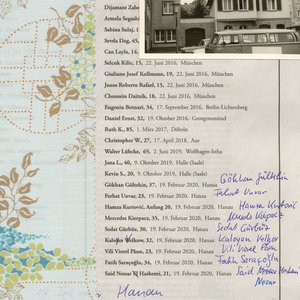 Dijamant Zabe
Armela Segashi
Sabina Sulaj,
Sevda Dag, 45,
Can Leyla, 14,
Selcuk Kilic, 15, 22. Juni 2016, München
Giuliano Josef Kollmann, 19, 22. Juni 2016, München
Janos Roberto Rafael, 15, 22. Juni 2016, München
Chousein Daitzik, 18, 22. Juni 2016, München
Eugeniu Botnari, 34, 17. September 2016, Berlin-Lichtenberg
Daniel Ernst, 32, 19. Oktober 2016, Georgensmünd
Ruth K., 85, 1. März 2017, Döbeln
Christopher W., 27, 17. April 2018, Aue
Walter Lübcke, 65, 2. Juni 2019, Wolfhagen-Istha
Jana L., 40, 9. Oktober 2019, Halle (Saale)
Kevin S., 20, 9. Oktober 2019, Halle (Saale)
Gökhan Gültekin, 37, 19. Februar 2020, Hanau
Ferhat Unvar, 23, 19. Februar 2020, Hanau
Hamza Kurtović, Anfang 20, 19. Februar 2020, Hanau
Mercedes Kierpacz, 35, 19. Februar 2020, Hanau
Sedat Gürbüz, 30, 19. Februar 2020, Hanau
Kaloyan Velkow, 32, 19. Februar 2020, Hanau
Vili Viorel Păun, 23, 19. Februar 2020, Hanau
Fatih Saraçoğlu, 34, 19. Februar 2020, Hanau
Said Nessar El Hashemi, 21, 19. Februar 2020, Hanau
Gökhan Gültekin
Ferhat Unvar
Hamza Kurtović
Sedat Gürbüz
Kaloyan
Vili Viorel Păun
Fatih Saraçoğlu
Said
Hanau